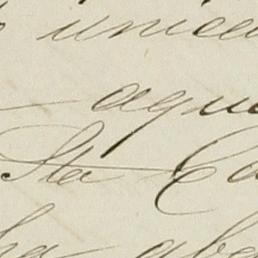 unica
aqu
Sta Ca
ha abe